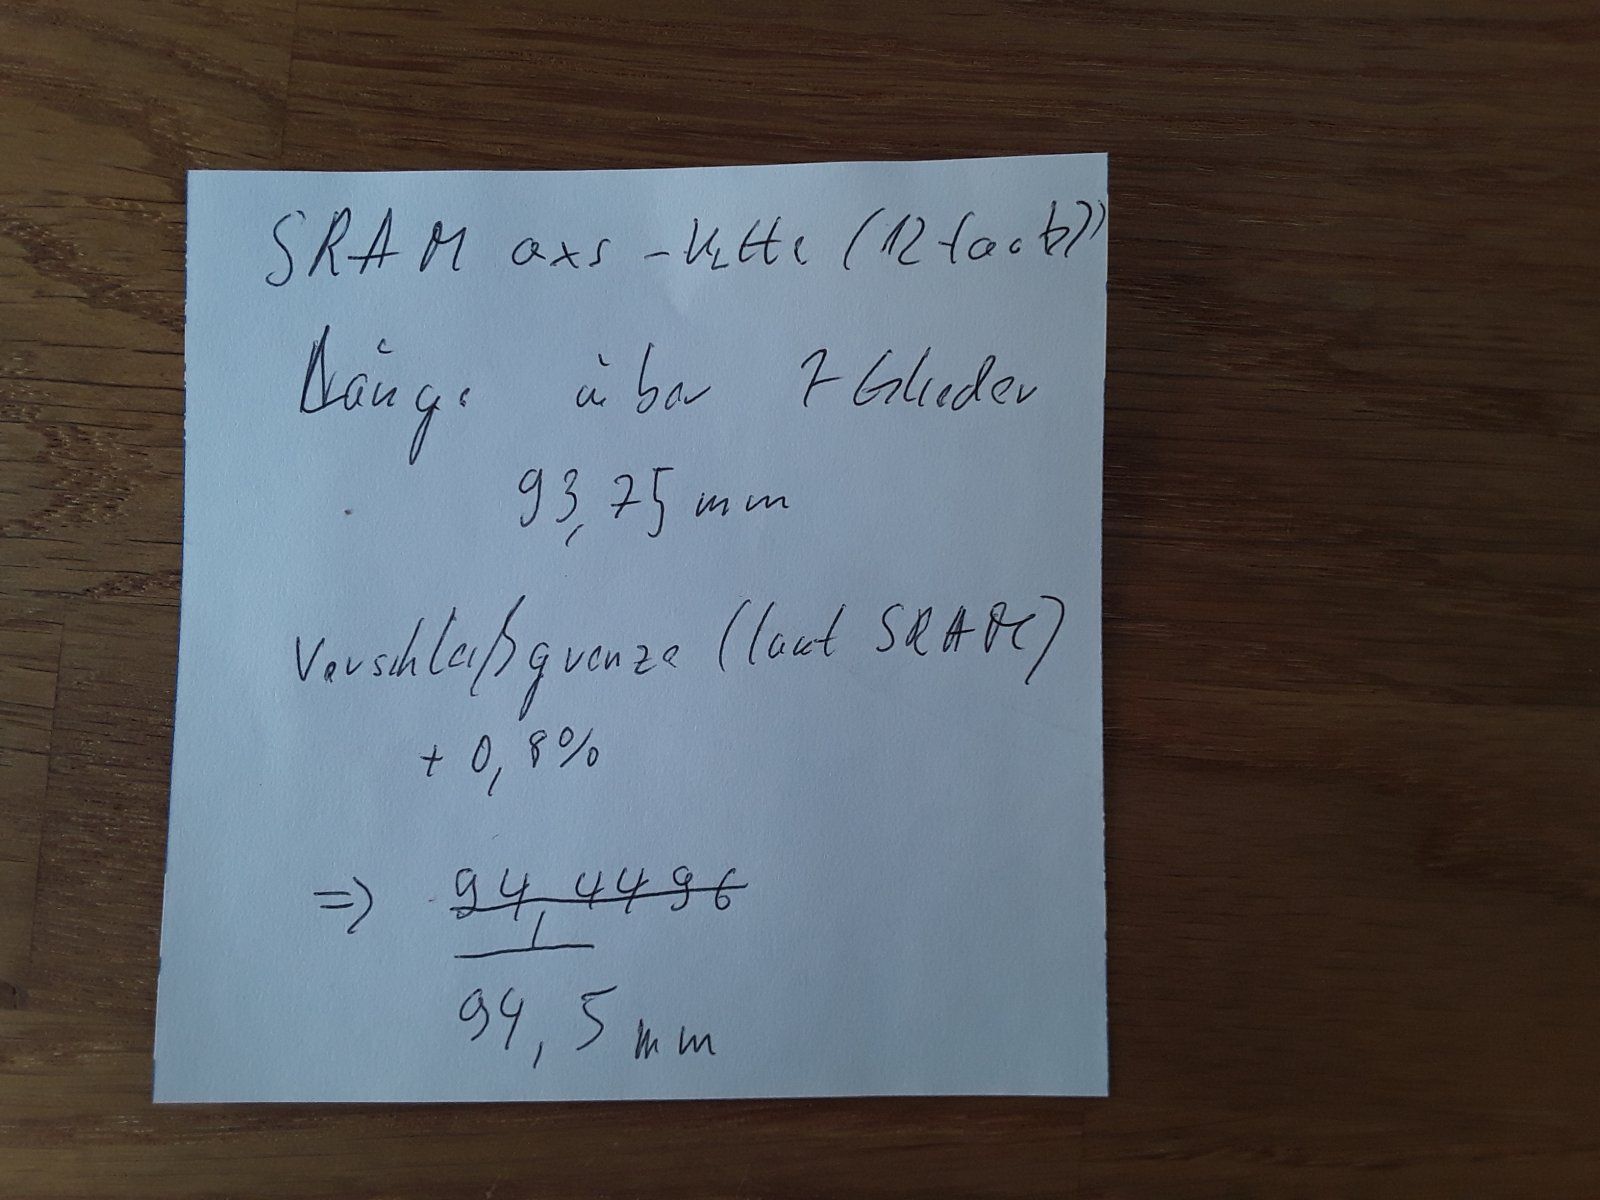 SRAM axs - Kette (12 fach)
Länge über 7 Glieder
93,75 mm
Verschleißgrenze (laut SRAM)
+ 0,8%
=> 94,4496
94,5 mm